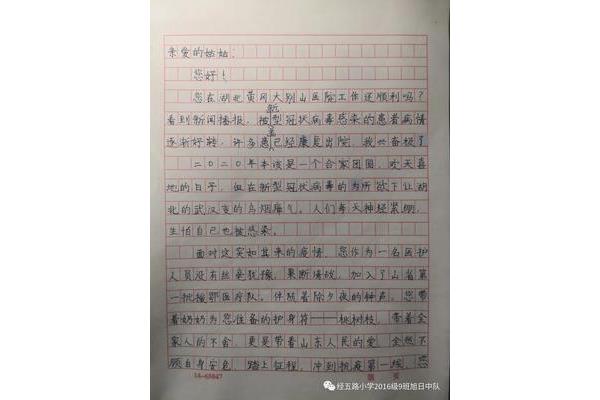 亲爱的姑姑：
您好！
您在湖北黄冈大别山医院工作还顺利吗？
看到新闻播报，被新型冠状病毒感染的患者病情
逐渐好转，许多患者已经康复出院，我兴奋极了
二〇二〇年本该是一个合家团圆，欢天喜
地的日子，但在新型冠状病毒的为所欲下让湖
北的武汉变的乌烟瘴气。人们每天神经紧绷，
生怕自己也被感染。
面对这突如其来的疫情，您作为一名医护
人员没有丝毫犹豫，果断请战，加入了山省第
一批援鄂医疗队。伴随着除夕夜的钟声，您带
着奶奶为您准备的护身符——桃树枝，带着全
家人的不舍，更是带着山东人民的爱，全然不
顾自身安危，踏上征程，冲到抗疫第一线，您
14—65847
第 页
经五路小学2016级9班旭日中队